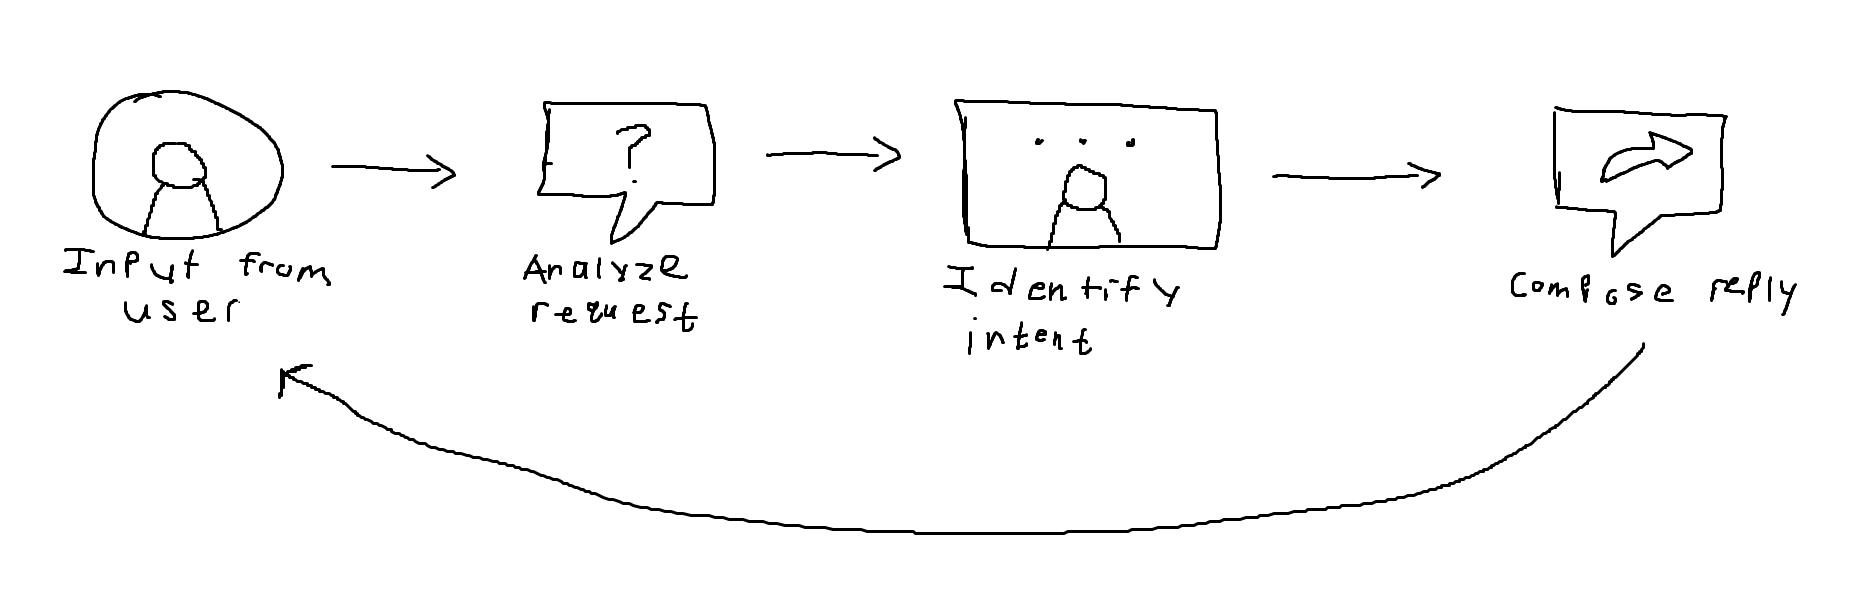 Input from
user
Analyze
request
?
Identify
intent
...
Compose reply